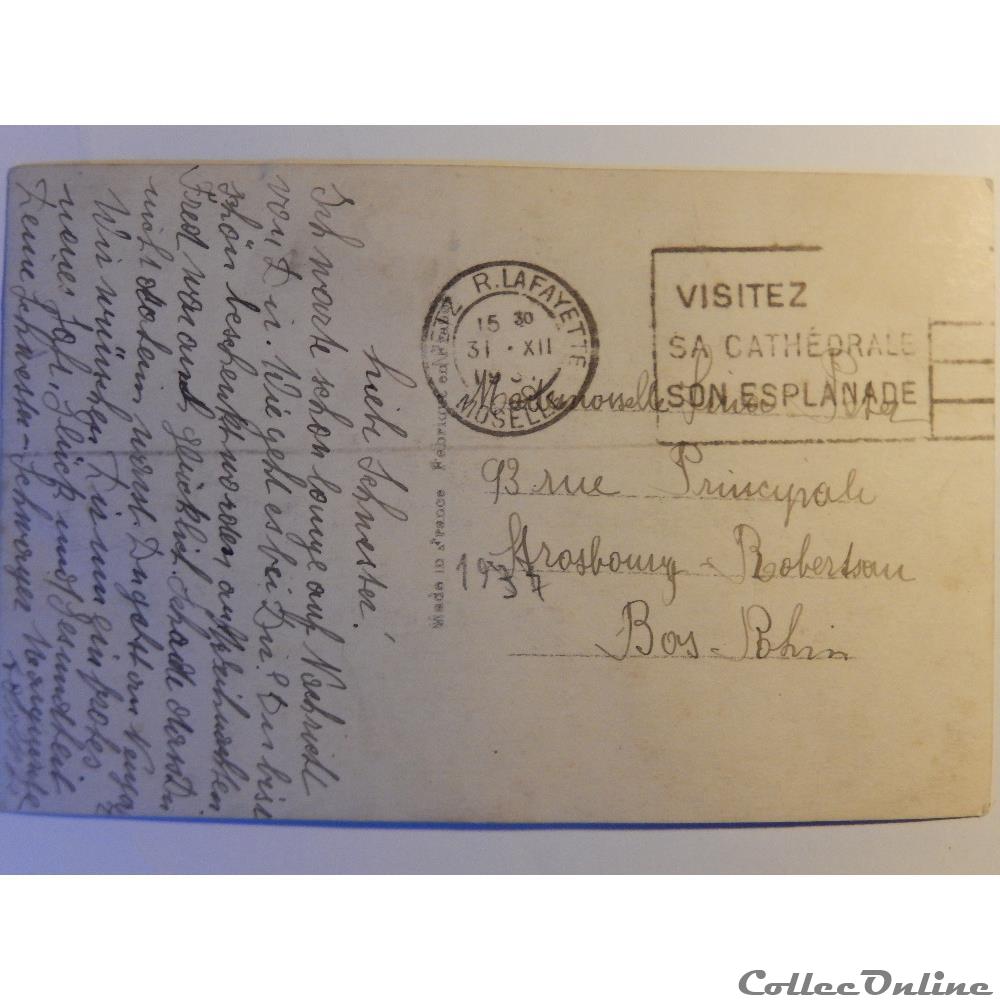 Liebe Schwester!
Ich warte schon lange auf Nachricht
von Dir. Wie geht es bei Dir. Du bist
schön beschenkt worden an Weihnachten
Fred war auch glücklich schade dass Du
nicht daheim warst. Du gehst an
Wir wünschen Dir nun ein frohes
neues Jahr, Glück und Gesundheit
Deine Schwester - Schwager
Made in France Fabriqué en France
METZ R. LAFAYETTE
15 30
31 · XII
MOSELLE
VISITEZ
SA CATHÉDRALE
SON ESPLANADE
Mademoiselle
93 rue Principale
Strasbourg - Robertsau
Bas-Rhin
1937
CollecOnline